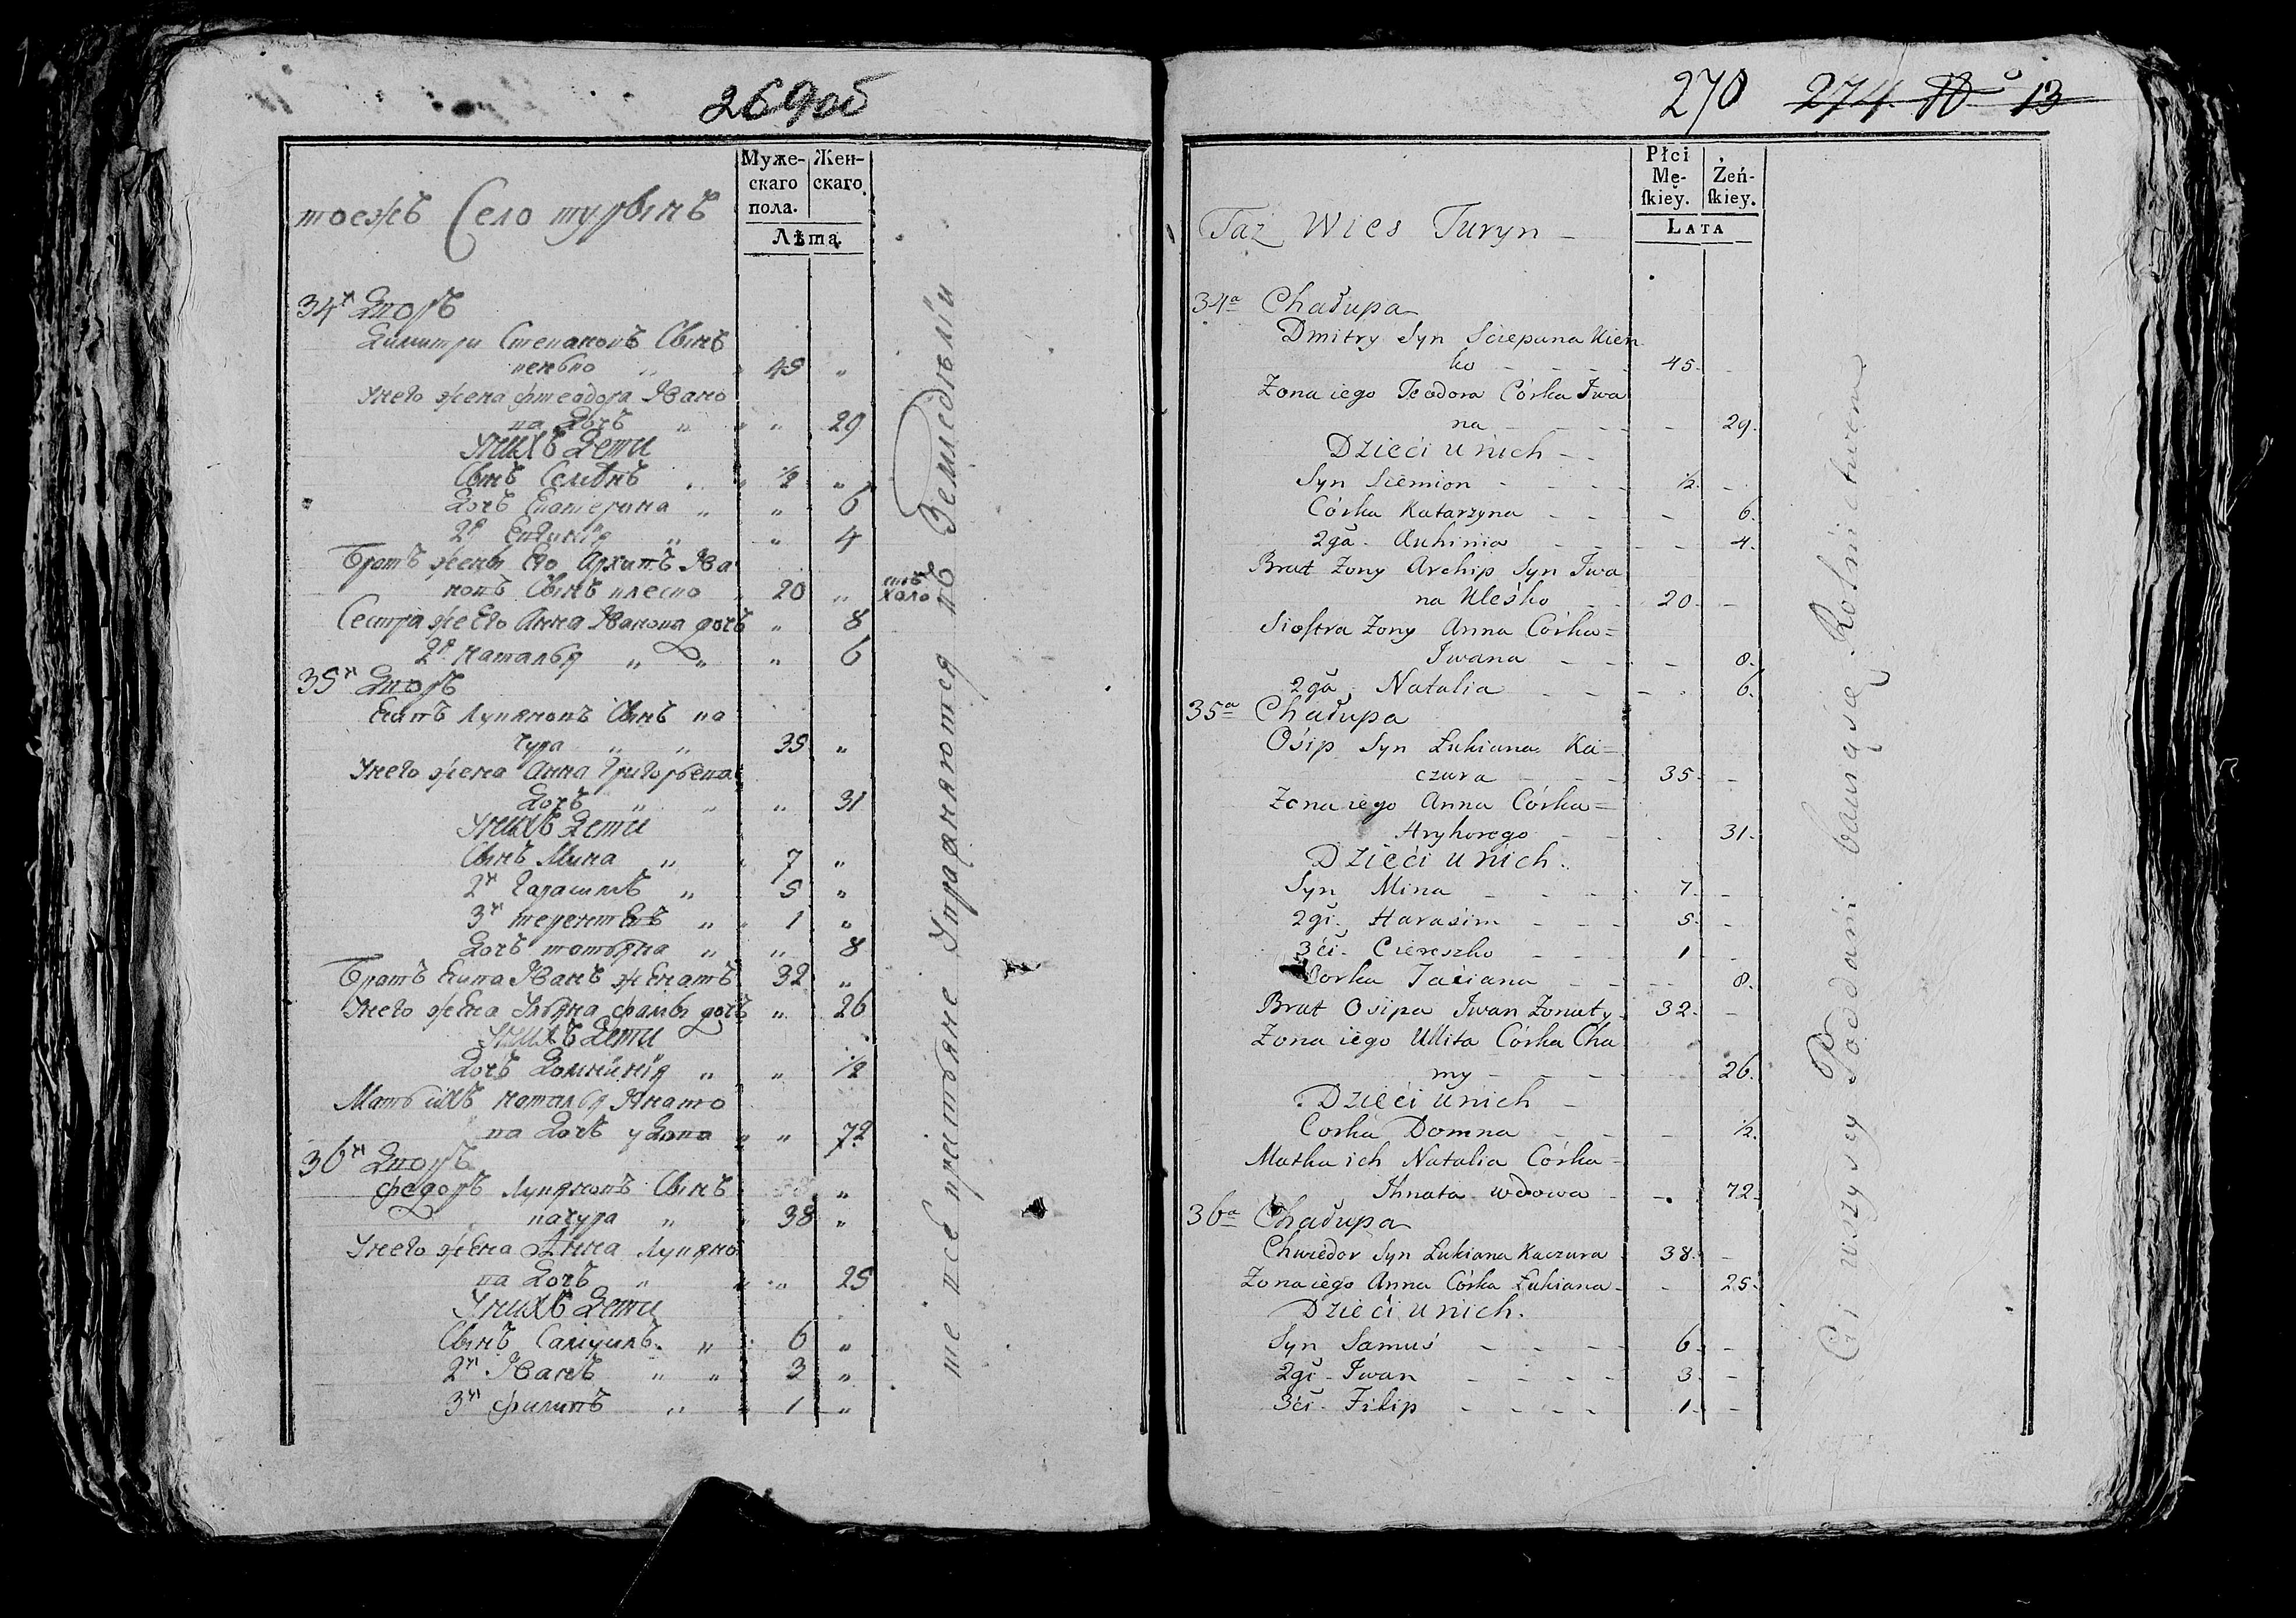 269об
Муже-
скаго
пола.
Жен-
скаго.
Лѣта.
тоежъ Село турынъ
34й Дворъ
Димитри Степановъ Сынъ
венько „ 45 „
Унего жена фтеодора Ивано
ва Дочъ „ „ 29
Унихъ Дети
Сынъ Семѣнъ ½ „
Дочъ Екатерина „ „ 6
2я „ „ 4
Братъ жены Его Архипъ Ива
новъ Сынъ влеско 20 „ холо
Сестра же Его Анна Иванова дочъ „ 8
2я Наталья „ „ „ 6
35й Дворъ
Есипъ Лукяновъ Сынъ ка
чура „ „ 35 „
Унего жена Анна Григорьева
Дочъ „ „ „ 31
Унихъ Дети
Сынъ Мина „ 7 „
2й Гарасимъ „ 5 „
3й терентей „ 1 „
Дочъ татьяна „ „ 8
Братъ Есипа Иванъ жЕнатъ 32 „
Унего жЕна Ульяна фамы дочъ „ 26
Унихъ Дети
Дочъ Домникия „ „ ½
Мать ихъ Наталья Игнато
ва Дочъ удова „ „ 72
36й Дворъ
федоръ Лукяновъ Сынъ „
качура „ 38 „
Унего жЕна Анна Лукяно
ва Дочъ „ „ „ 25
Унихъ Дети
Сынъ Самуилъ „ 6 „
2й Иванъ „ „ 3 „
3й филипъ „ 1 „
те все крестьяне Упражняются въ Земледѣлiи
270 274. 13
Płci
Mę-
ſkiey.
Żeń-
ſkiey.
LATA
Taż Wies Turyn –
34a Chałupa
Dmitry Syn Sciepana Wien
ko – – – – 45. –
Zona iego Teodora Córka Iwa
na – – – – – 29.
Dzieći u nich – –
Syn Siemion – – – – ½. –
Córka Katarzyna – – – – 6.
2ga. Auhinia – – – – 4.
Brat Zony Archip Syn Iwa
na Uleśko – – 20. –
Sioſtra Zony Anna Córka =
Iwana – – – – 8.
2ga. Natalia – – – – 6.
35a Chałupa
Osip Syn Łukiana Ka =
czura – – – 35. –
Zona iego Anna Córka =
Hryhorego – – – 31.
Dzieći u nich.
Syn Mina – – – – 7. –
2gi. Harasim – – – 5. –
3ći. Ciereszko – – – 1 –
Corka Taciana – – – – 8.
Brat Osipa Iwan Zonaty. 32. –
Zona iego Ullita Córka Cha
my – – – – 26.
Dzieći u nich –
Corka Domna – – – ½.
Matka ich Natalia Córka =
Ihnata wdowa – – 72.
36a Chałupa
Chwiedor Syn Łukiana Kaczura 38. –
Zona iego Anna Córka Łukiana – – 25.
Dzieći u nich.
Syn Samuś – – – – 6. –
2gi – Iwan – – – – 3. –
3ći – Filip – – – – 1. –
Ci wszyscy Poddani bawiąsię Rolnictwem